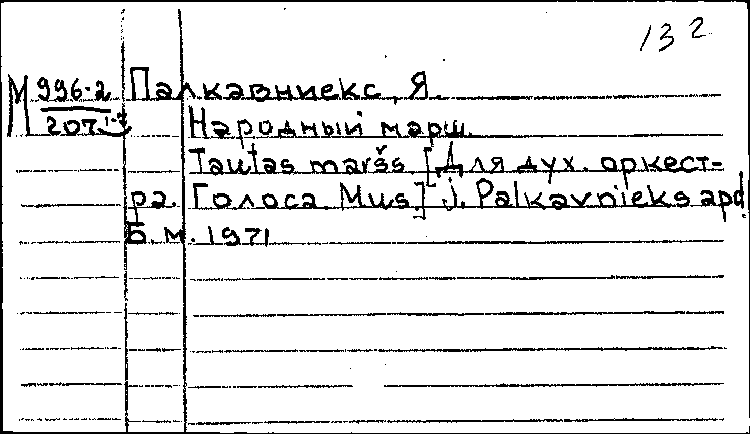 132
М 996-2 Палкавниекс, Я.
207 1-2 Народный марш.
Tautas maršs [Для дух. оркест-
ра. Голоса. Mus.] J. Palkavnieks apd.
Б.м. 1971